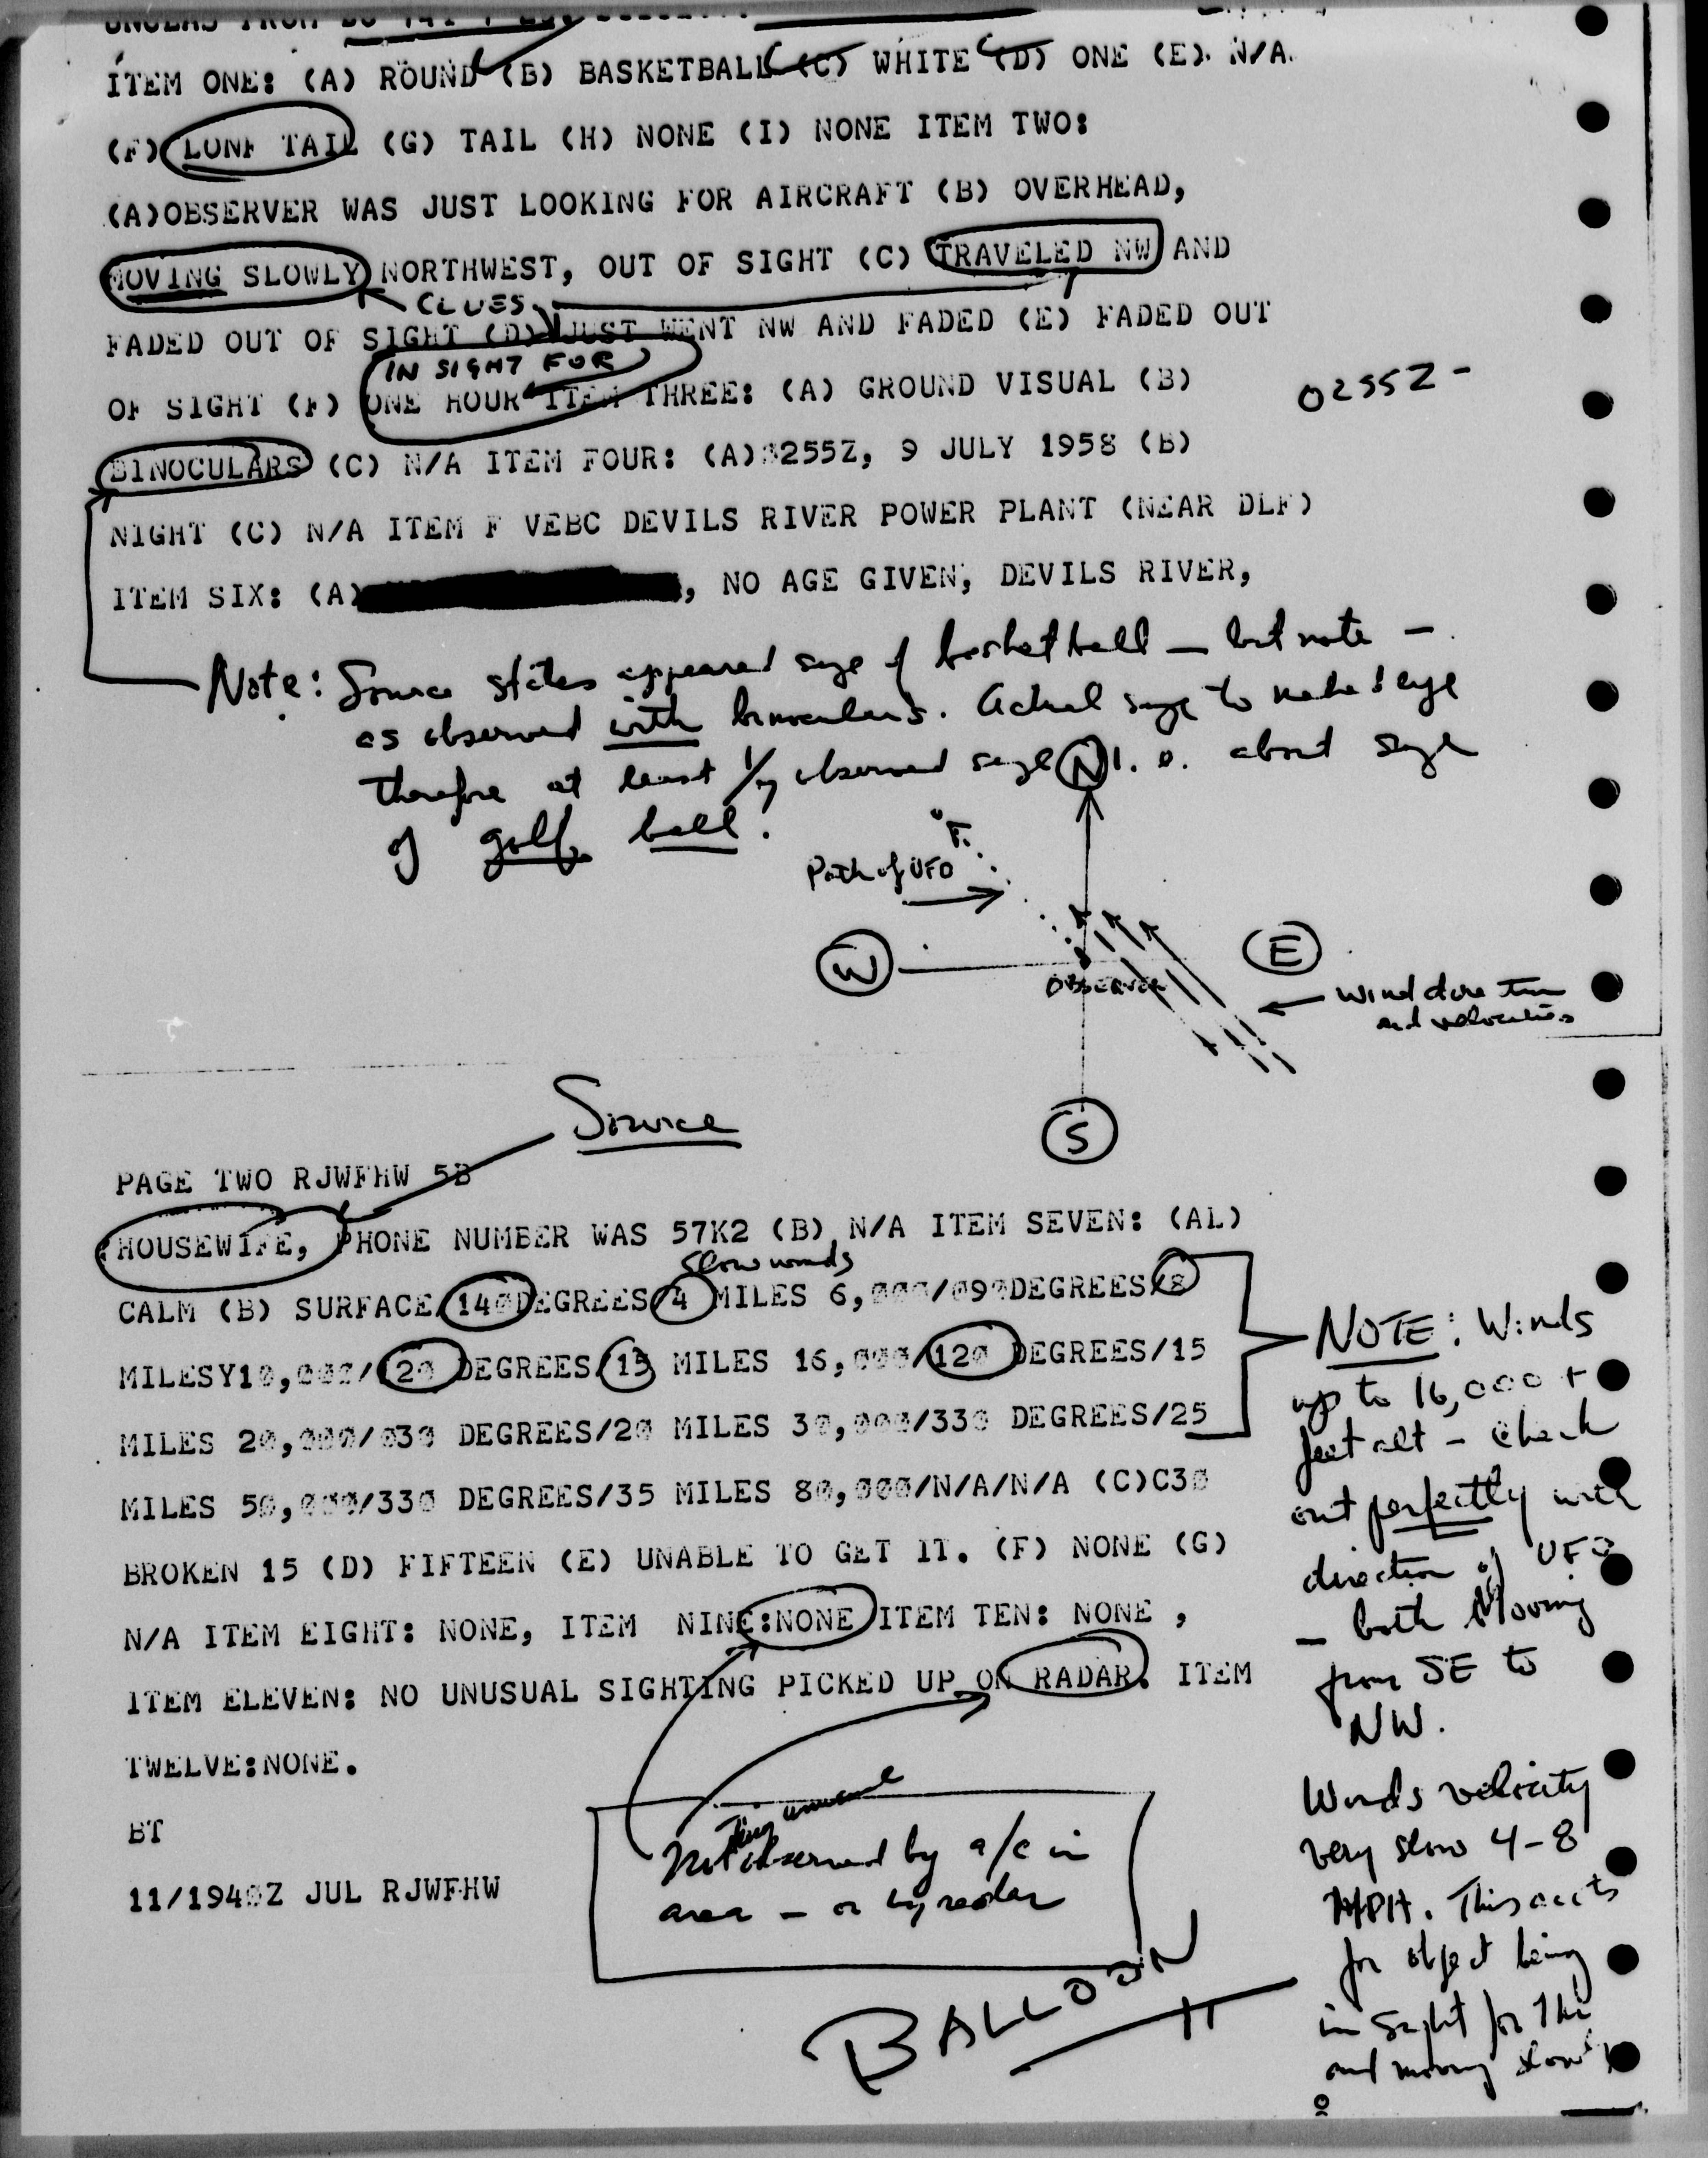 ITEM ONE: (A) ROUND (B) BASKETBALL (C) WHITE (D) ONE (E). N/A.
(F) LONF TAIL (G) TAIL (H) NONE (I) NONE ITEM TWO:
(A)OBSERVER WAS JUST LOOKING FOR AIRCRAFT (B) OVERHEAD,
MOVING SLOWLY NORTHWEST, OUT OF SIGHT (C) TRAVELED NW AND
CLUES
FADED OUT OF SIGHT (D) JUST WENT NW AND FADED (E) FADED OUT
IN SIGHT FOR
OF SIGHT (F) ONE HOUR ITEM THREE: (A) GROUND VISUAL (B)
0255Z -
BINOCULARS (C) N/A ITEM FOUR: (A) 255Z, 9 JULY 1958 (B)
NIGHT (C) N/A ITEM F VEBC DEVILS RIVER POWER PLANT (NEAR DLF)
ITEM SIX: (A) , NO AGE GIVEN, DEVILS RIVER,
Note: Source states appeared size of basketball - but note -
as observed with binoculars. Actual size to naked eye
therefore at least 1/7 observed size 1. e. about size
of golf ball!
N
Path of UFO
W
E
OBSERVER
Wind direction
and velocities
S
Source
PAGE TWO RJWFHW 5B
HOUSEWIFE, PHONE NUMBER WAS 57K2 (B) N/A ITEM SEVEN: (AL)
Slow winds
CALM (B) SURFACE/140DEGREES/4 MILES 6,000/090DEGREES/8
MILESY10,000/120 DEGREES/15 MILES 16,000/120 DEGREES/15
MILES 20,000/030 DEGREES/20 MILES 30,000/330 DEGREES/25
MILES 50,000/330 DEGREES/35 MILES 80,000/N/A/N/A (C)C30
BROKEN 15 (D) FIFTEEN (E) UNABLE TO GET IT. (F) NONE (G)
N/A ITEM EIGHT: NONE, ITEM NINE:NONE ITEM TEN: NONE ,
ITEM ELEVEN: NO UNUSUAL SIGHTING PICKED UP ON RADAR. ITEM
TWELVE:NONE.
BT
11/1940Z JUL RJWFHW
NOTE: Winds
up to 16,000 +
feet alt - check
out perfectly with
direction of UFO
- both Moving
from SE to
NW.
Winds velocity
very slow 4-8
MPH. This accts
for object being
in sight for 1 hr
and moving slow
unusual
Not observed by a/c in
area - or by radar
BALLOON